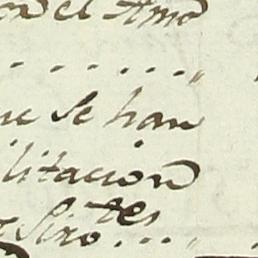 on el Amo
. . . . . . . "
ue se han
litacion
tes
Siro . . . "